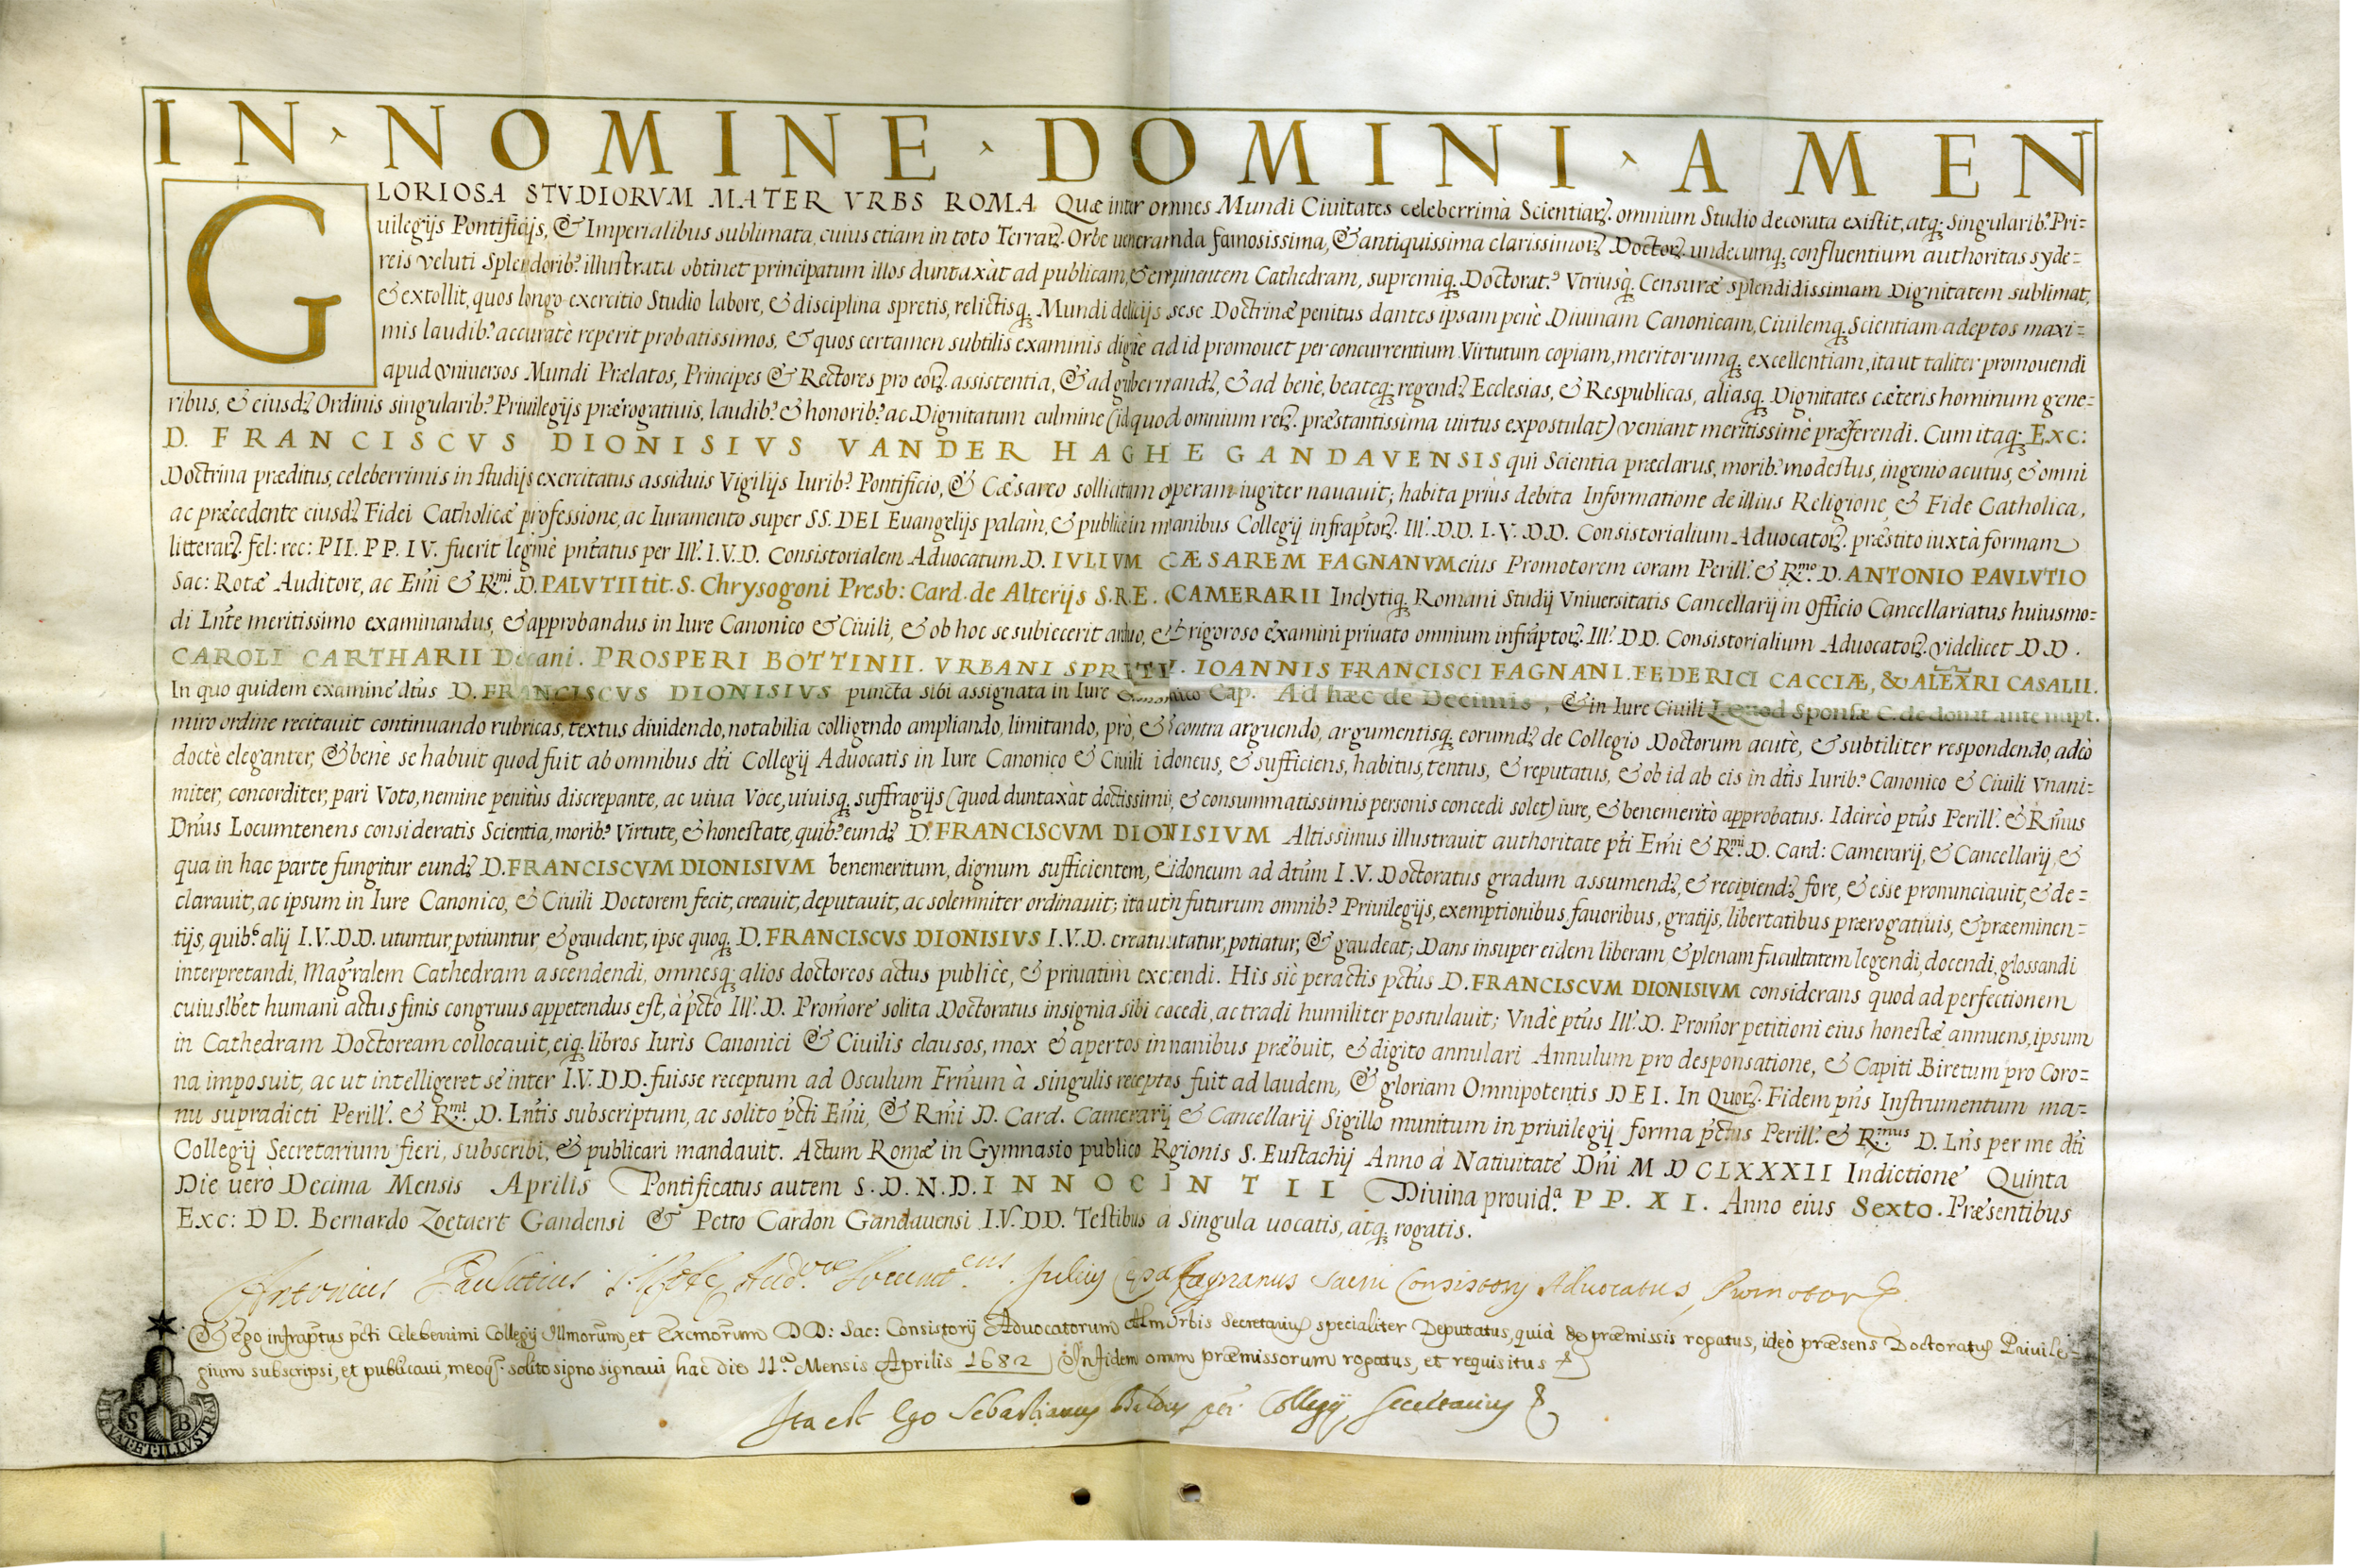 IN · NOMINE · DOMINI · AMEN
GLORIOSA STVDIORVM MATER VRBS ROMA Quæ inter omnes Mundi Ciuitates celeberrima Scientiarꝝ. omnium Studio decorata existit, atq; Singularib.⁹ Pri=
uilegijs Pontificijs, & Imperialibus sublimata, cuius etiam in toto Terrarꝝ. Orbe ueneramnda famosissima, & antiquissima clarissimorꝝ Doctorꝝ. undecumq; confluentium authoritas syde=
reis veluti Splendorib.⁹ illustrata obtinet principatum illos duntaxàt ad publicam, & eminentem Cathedram, supremiq; Doctorat.⁹ Vtriusq; Censuræ splendidissimam Dignitatem sublimat,
& extollit, quos longo exercitio Studio labore, & disciplina spretis, relictisq; Mundi delicijs sese Doctrinæ penitus dantes ipsam penè Diuinam Canonicam, Ciuilemq; Scientiam adeptos maxi=
mis laudib.⁹ accuratè reperit probatissimos, & quos certamen subtilis examinis dignè ad id promouet per concurrentium Virtutum copiam, meritorumq; excellentiam, ita ut taliter promouendi
apud vniuersos Mundi Prælatos, Principes & Rectores pro eorꝝ. assistentia, & ad gubernandꝝ, & ad benè, beateq; regendꝝ Ecclesias, & Respublicas, aliasq; Dignitates cæteris hominum gene=
ribus, & eiusdꝝ Ordinis singularib.⁹ Priuilegijs prærogatiuis, laudib.⁹ & honorib.⁹ ac Dignitatum culmine (id quod omnium rerꝝ. præstantissima uirtus expostulat) veniant meritissimè præferendi. Cum itaq; Exc:
D. FRANCISCVS DIONISIVS VANDER HAGHE GANDAVENSIS qui Scientia præclarus, morib.⁹ modestus, ingenio acutus, & omni
Doctrina præditus, celeberrimis in studijs exercitatus assiduis Vigilijs Iurib.⁹ Pontificio, & Cæsareo sollicitam operam iugiter nauauit; habita priùs debita Informatione de illius Religione, & Fide Catholica,
ac præcedente eiusdꝝ Fidei Catholicæ professione, ac Iuramento super SS. DEI Euangelijs palàm, & publicè in manibus Collegij infraptorꝝ. Ill.ͬ D.D. I.V.D.D. Consistorialium Aduocatorꝝ. præstito iuxtà formam
litterarꝝ. fel: rec: PII. PP. IV. fuerit legitimè pñtatus per Ill.ͬ I.V.D. Consistorialem Aduocatum D. IVLIVM CÆSAREM FAGNANVM eius Promotorem coram Perill.ͬ & R.ᵐᵒ D. ANTONIO PAVLVTIO
Sac: Rotæ Auditore, ac Em̃i & R.ᵐⁱ D. PALVTII tit. S. Chrysogoni Presb: Card. de Alterijs S.R.E. CAMERARII Inclytiq; Romani Studij Vniuersitatis Cancellarij in Officio Cancellariatus huiusmo=
di Lñte meritissimo examinandus, & approbandus in Iure Canonico & Ciuili, & ob hoc se subiecerit arduo, & rigoroso examini priuato omnium infraptorꝝ. Ill.ͬ D D. Consistorialium Aduocatorꝝ. videlicet D D.
CAROLI CARTHARII Decani. PROSPERI BOTTINII. VRBANI SPRETI. IOANNIS FRANCISCI FAGNANI. FEDERICI CACCIÆ, & ALEXRI CASALII.
In quo quidem examine dtus D. FRANCISCVS DIONISIVS puncta sibi assignata in Iure Canonico Cap. Ad hæc de Decimis, & in Iure Ciuili L. Quod Sponsæ C. de donat ante nupt.
miro ordine recitauit continuando rubricas, textus diuidendo, notabilia colligendo ampliando, limitando, prò, & contra arguendo, argumentisq; eorumdꝝ de Collegio Doctorum acutè, & subtiliter respondendo, adeò
doctè eleganter, & benè se habuit quod fuit ab omnibus dti Collegij Aduocatis in Iure Canonico & Ciuili idoneus, & sufficiens, habitus, tentus, & reputatus, & ob id ab eis in dtis Iurib.⁹ Canonico & Ciuili Vnani=
miter, concorditer, pari Voto, nemine penitùs discrepante, ac uiua Voce, uiuisq; suffragijs (quod duntaxàt doctissimis, & consummatissimis personis concedi solet) iure, & benemeritò approbatus. Idcircò ptus Perill.ͬ & Rm̃us
Dñus Locumtenens consideratis Scientia, morib.⁹ Virtute, & honestate, quib.⁹ eundꝝ D. FRANCISCVM DIONISIVM Altissimus illustrauit authoritate pti Em̃i & R.ᵐⁱ D. Card: Camerarij, & Cancellarij, &
qua in hac parte fungitur eundꝝ D. FRANCISCVM DIONISIVM benemeritum, dignum sufficientem, & idoneum ad dtum I.V. Doctoratus gradum assumendꝝ, & recipiendꝝ fore, & esse pronunciauit, & de=
clarauit, ac ipsum in Iure Canonico, & Ciuili Doctorem fecit, creauit, deputauit, ac solemniter ordinauit; ita ut in futurum omnib.⁹ Priuilegijs, exemptionibus, fauoribus, gratijs, libertatibus prærogatiuis, & præeminen=
tijs, quib.⁹ alij I.V.D.D. utuntur, potiuntur, & gaudent, ipse quoq; D. FRANCISCVS DIONISIVS I.V.D. creatus utatur, potiatur, & gaudeat; Dans insuper eidem liberam, & plenam facultatem legendi, docendi, glossandi
interpretandi, Magralem Cathedram ascendendi, omnesq; alios doctoreos actus publicè, & priuatìm exercendi. His sic peractis pctus D. FRANCISCVM DIONISIVM considerans quod ad perfectionem
cuiuslbet humani actus finis congruus appetendus est, à pcto Ill.ͬ D. Promore solita Doctoratus insignia sibi cocedi, ac tradi humiliter postulauit; Vnde ptus Ill.ͬ D. Promor petitioni eius honestæ annuens, ipsum
in Cathedram Doctoream collocauit, eiq; libros Iuris Canonici & Ciuilis clausos, mox & apertos in manibus præbuit, & digito annulari Annulum pro desponsatione, & Capiti Biretum pro Coro=
na imposuit, ac ut intelligeret se inter I.V.D.D. fuisse receptum ad Osculum Frñum à singulis receptus fuit ad laudem, & gloriam Omnipotentis DEI. In Quorꝝ. Fidem pñs Instrumentum ma=
nu supradicti Perill.ͬ & R.ᵐⁱ D. Lñtis subscriptum, ac solito pcti Em̃i, & Rm̃i D. Card. Camerarij & Cancellarij Sigillo munitum in priuilegij forma pctus Perill.ͬ & R.ᵐᵘˢ D. Lñs per me dti
Collegij Secretarium fieri, subscribi, & publicari mandauit. Actum Romæ in Gymnasio publico Rgionis S. Eustachij Anno à Natiuitate Dñi M D C LXXXII Indictione Quinta
Die uerò Decima Mensis Aprilis Pontificatus autem S. D. N. D. INNOCINTII Diuina prouid.ᵃ PP. XI. Anno eius Sexto. Præsentibus
Exc: D D. Bernardo Zoetaert Gandensi & Petro Cardon Gandauensi I.V.D.D. Testibus à singula uocatis, atq; rogatis.
Antonius Paulutius S. Rotæ Aud.ᵒʳ Locumt.ᵉⁿˢ Julius Cæsar Fagnanus Sacri Consistorij Aduocatus, Promotor
Et Ego infraptus pcti Celeberrimi Collegij Illmorum, et Excmorum D D: Sac: Consistorij Aduocatorum Alm Urbis Secretarius specialiter Deputatus, quia de præmissis rogatus, ideò præsens Doctoratus Priuile=
gium subscripsi, et publicaui, meoq; solito signo signaui hac die 11.ᵃ Mensis Aprilis 1682 In fidem omm præmissorum rogatus, et requisitus
Ita est Ego Sebastianus Collegij Secretarius
S B
ET ILLVSTRAT